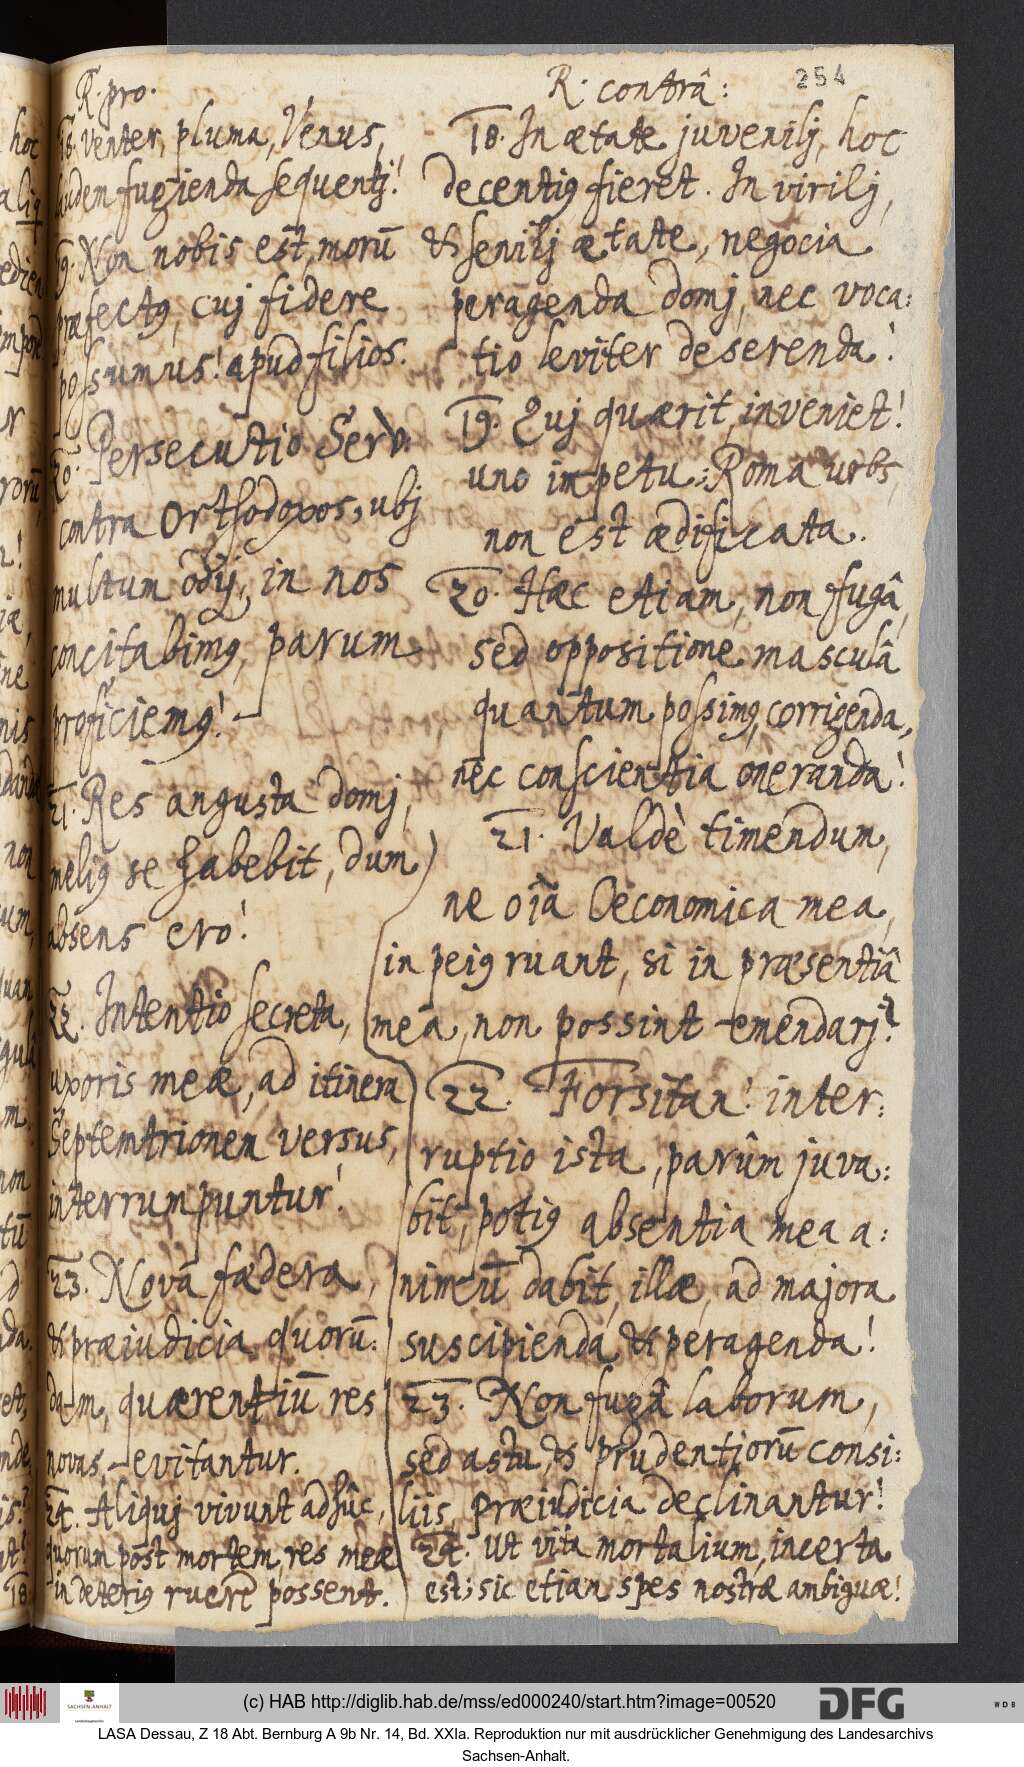 R. pro.
18. Venter, pluma, Venus,
laudem fugienda sequentj!
19. Non nobis est, morū
præfectꝰ, cuj fidere
possumus! apud filios.
20. Persecutio Serv.
contra Orthodoxos, ubj
multum odij, in nos
concitabimꝰ, parum
proficiemꝰ! -
21. Res angusta domj,
meliꝰ se habebit, dum
absens ero!
22. Intentio secreta,
uxoris meæ, ad itinera
Septemtrionem versus,
interrumpuntur!
23. Nova fœdera,
& præiudicia quorū:
dam, quærentiū res
novas, evitantur.
24. Aliquj vivunt adhûc,
quorum post mortem, res meæ
in deteriꝰ ruere possent.
254
R. contrâ:
18. In ætate juvenilj, hoc
decentiꝰ fieret. In virilj,
& senilj ætate, negocia
peragenda domj, nec voca:
tio leviter deserenda!
19. Quj quærit, inveniet!
uno impetu: Roma urbs,
non est ædificata.
20. Hæc etiam, non fugâ,
sed oppositione masculâ
quantum possimꝰ, corrigenda,
nec conscientia oneranda!
21. Valdè timendum,
ne oīa Oeconomica mea,
in peiꝰ ruant, si in præsentiâ
mea, non possint emendarj?
22. Forsitan! inter:
ruptio ista, parûm juva:
bit, potiꝰ absentia mea a:
nimū dabit, illæ, ad majora
suscipienda, & peragenda!
23. Non fugâ laborum,
sed astu, & prudentiorū consi:
liis, præiudicia declinantur!
24. Ut vita mortalium, incerta
est; sic etiam spes nostræ ambiguæ!
hoc
18
(c) HAB http://diglib.hab.de/mss/ed000240/start.htm?image=00520
SACHSEN-ANHALT
DFG
WDB
LASA Dessau, Z 18 Abt. Bernburg A 9b Nr. 14, Bd. XXIa. Reproduktion nur mit ausdrücklicher Genehmigung des Landesarchivs
Sachsen-Anhalt.